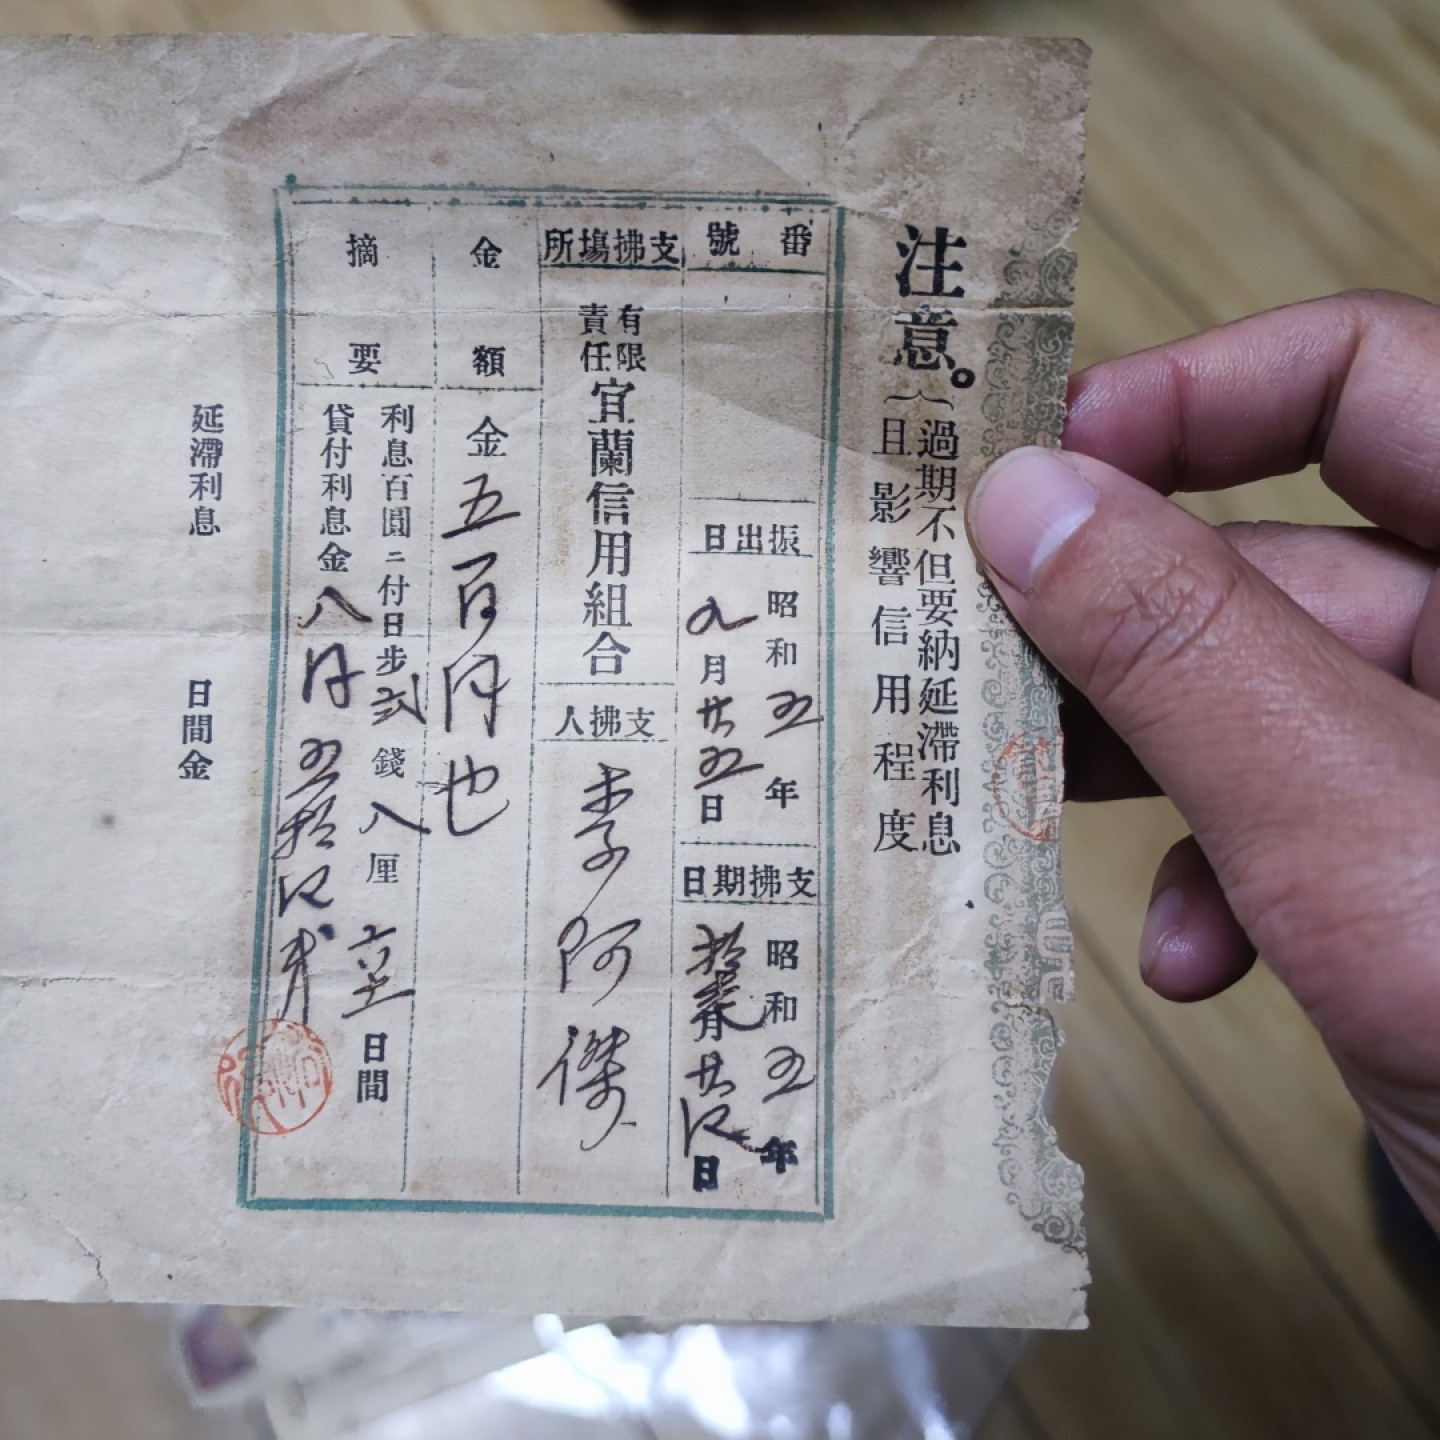 注意。
過期不但要納延滯利息
且影響信用程度
番號
振出日
昭和五年
九月廿五日
支拂期日
昭和五年
拾壹月廿四日
支拂塲所
有限責任宜蘭信用組合
支拂人
李阿傑
金額
金五百円也
摘要
利息百圓ニ付日步弍錢八厘六壱日間
貸付利息金八円五拾四錢
延滯利息 日間金